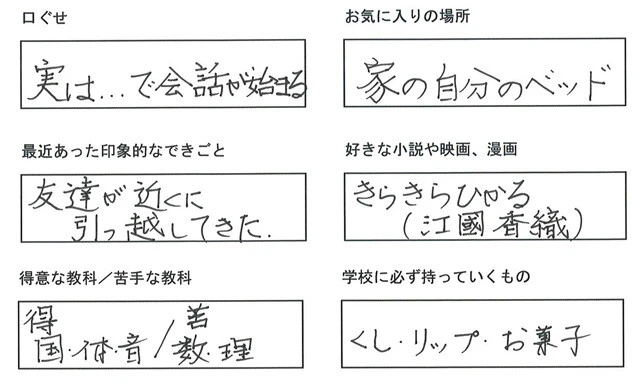 口ぐせ
実は…で会話が始まる
お気に入りの場所
家の自分のベッド
最近あった印象的なできごと
友達が近くに
引っ越してきた.
好きな小説や映画、漫画
きらきらひかる
(江國香織)
得意な教科／苦手な教科
得
国·体·音/苦
数·理
学校に必ず持っていくもの
くし·リップ·お菓子